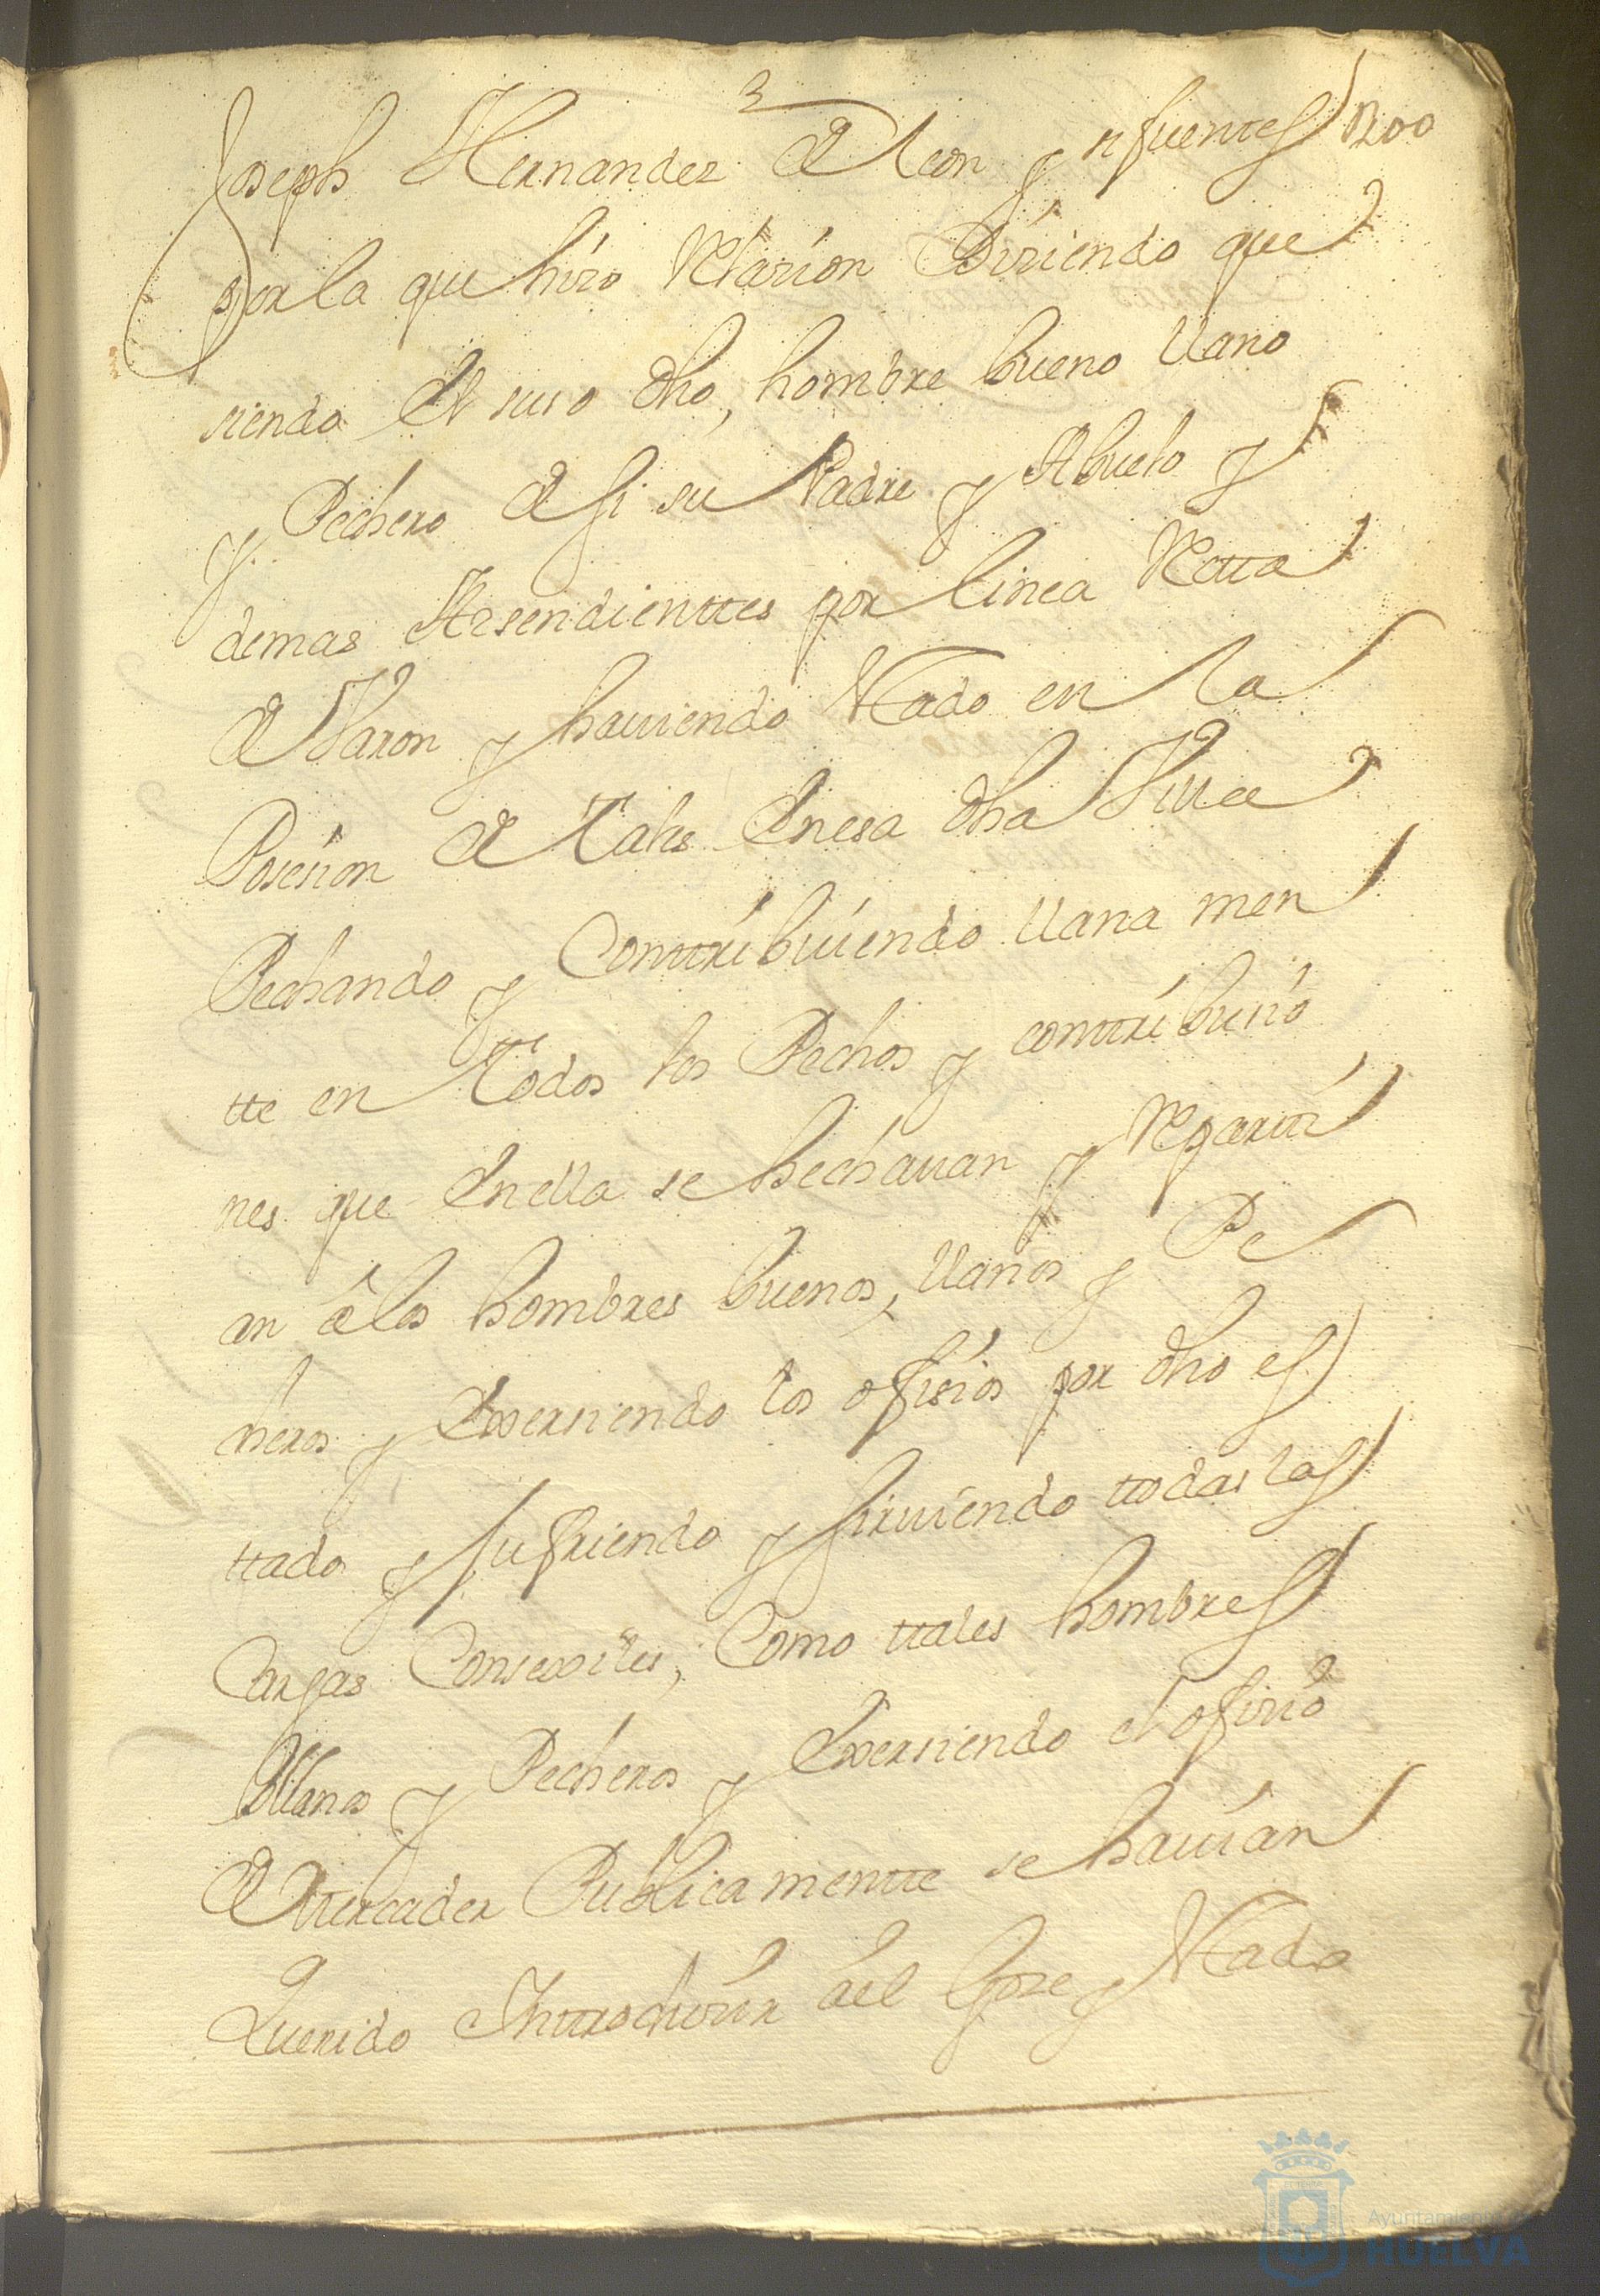 3
Joseph Hernandez de leon y nfuentes 1200
por la que hiso Relasion Disiendo que
siendo el suso dho, hombre bueno llano
y Pechero de si su Padre y Abuelo y
demas Assendienttes por linea Retta
de Varon y haviendo estado en la
Posesion de tales Enesa dha Villa
Pechando y Conttribuiendo llana men
tte en todos los Pechos y conttribusio
nes que Enella se hechavan y Reparti
an à los hombres buenos, llanos y Pe
cheros y Exersiendo los ofisios por dho es
ttado y sufriendo y sirviendo ttodas las
Cargas Consexiles, Como ttales hombres
llanos y Pecheros y Exersiendo el ofisio
de Mercader Publicamentte se havian
Querido Introdusir àel
Ayuntamiento de
HUELVA